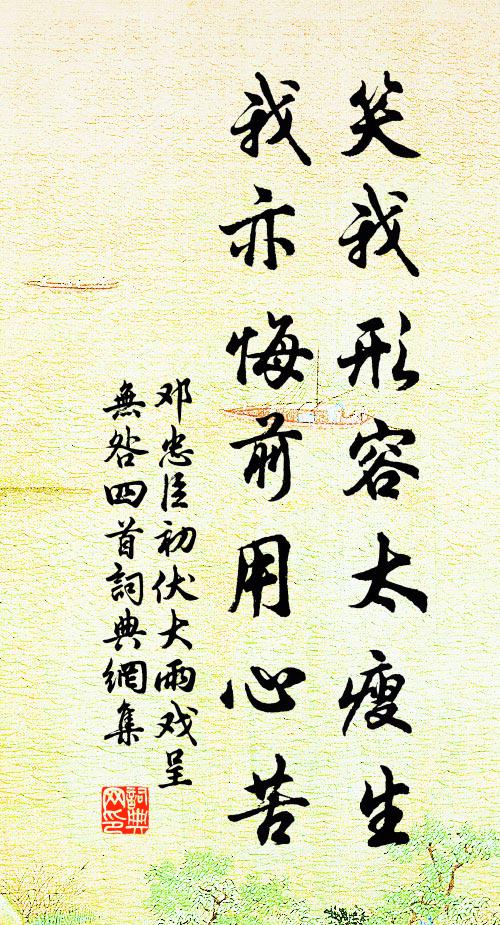 笑我形容太瘦生
我亦悔前用心苦
邓忠臣初伏大雨戏呈
無咎四首詞典網集
詞典
网印